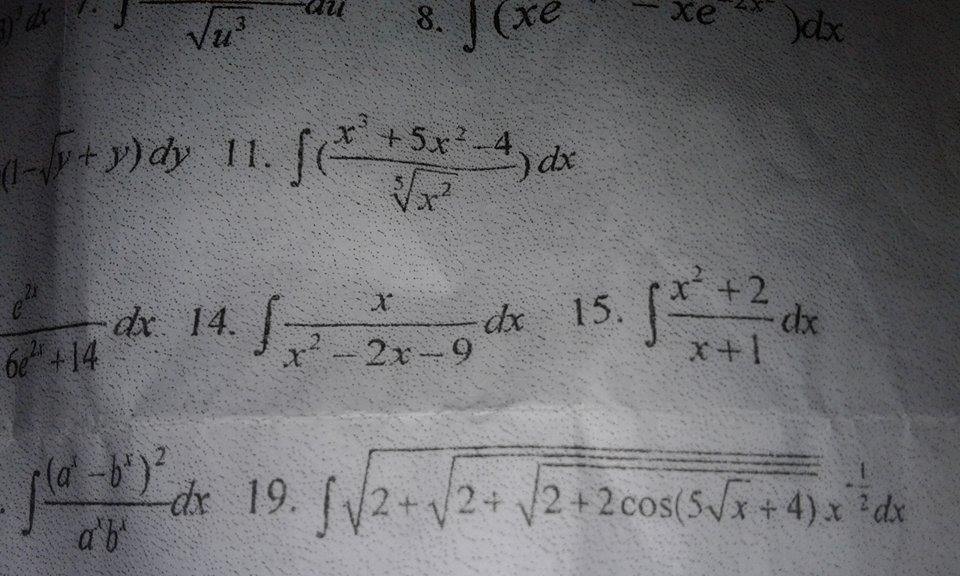 )³ dx 7. ∫ /√u³ du 8. ∫(xe − xe⁻²ˣ )dx
(1−√y + y) dy 11. ∫( (x³ + 5x² − 4) / ⁵√x² ) dx
e²ˣ / (6e²ˣ + 14) dx 14. ∫ x / (x² − 2x − 9) dx 15. ∫ (x² + 2) / (x + 1) dx
∫ (aˣ − bˣ)² / (aˣbˣ) dx 19. ∫ √(2 + √(2 + √(2 + 2cos(5√x + 4)))) x^(-1/2) dx